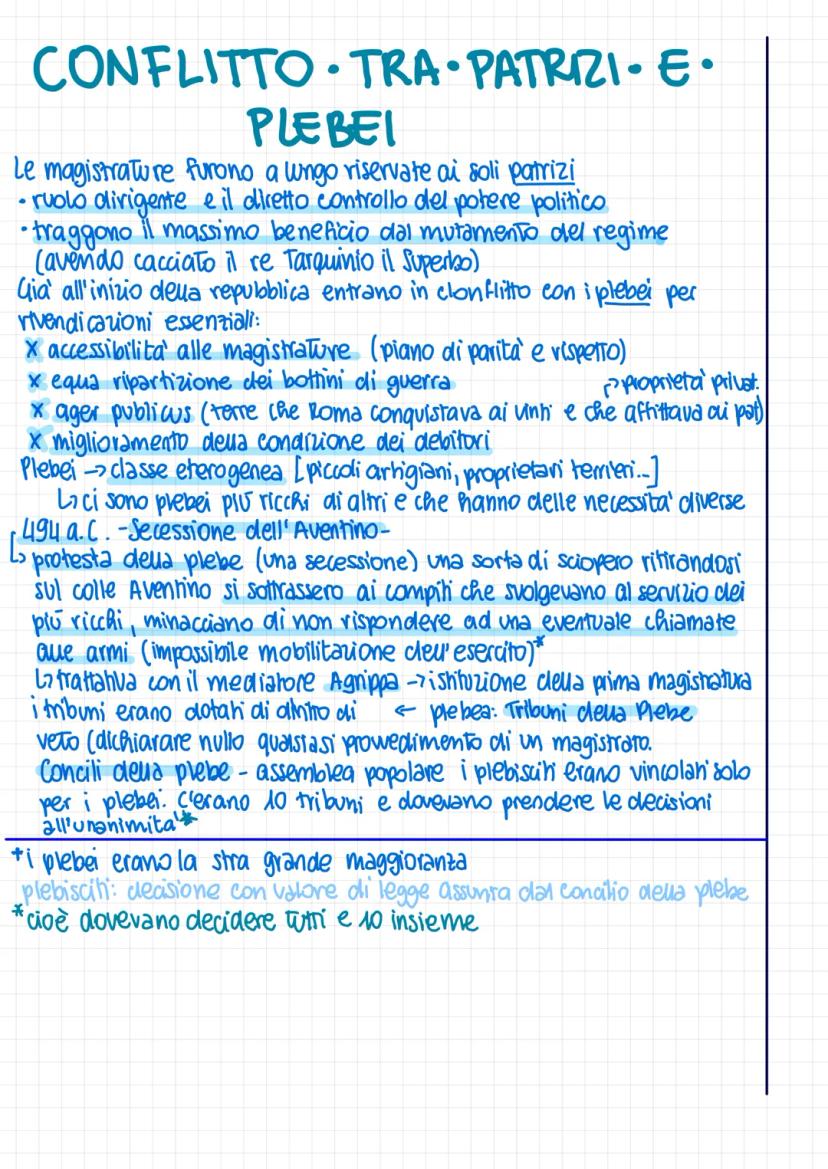 CONFLITTO · TRA · PATRIZI · E ·
PLEBEI
Le magistrature furono a lungo riservate ai soli patrizi
• ruolo dirigente e il diretto controllo del potere politico
• traggono il massimo beneficio dal mutamento del regime
(avendo cacciato il re Tarquinio il Superbo)
Già all'inizio della repubblica entrano in clonflitto con i plebei per
rivendicazioni essenziali:
x accessibilità alle magistrature (piano di parità e rispetto)
x equa ripartizione dei bottini di guerra
↱ proprietà privat.
x ager publicus (terre che Roma conquistava ai vinti e che affittava ai pat)
x miglioramento della condizione dei debitori
Plebei → classe eterogenea [piccoli artigiani, proprietari terrieri...]
↳ ci sono plebei più ricchi di altri e che hanno delle necessità diverse
494 a.C. - Secessione dell'Aventino -
↳ protesta della plebe (una secessione) una sorta di sciopero ritirandosi
sul colle Aventino si sottrassero ai compiti che svolgevano al servizio dei
più ricchi, minacciano di non rispondere ad una eventuale chiamate
alle armi (impossibile mobilitazione dell'esercito)*
↳ trattativa con il mediatore Agrippa → istituzione della prima magistratura
i tribuni erano dotati di diritto di ← plebea: Tribuni della Plebe
veto (dichiarare nullo qualsiasi provvedimento di un magistrato.
Concili della plebe - assemblea popolare i plebisciti erano vincolati solo
per i plebei. C'erano 10 tribuni e dovevano prendere le decisioni
all'unanimità*
*i plebei erano la stra grande maggioranza
plebisciti: decisione con valore di legge assunta dal concilio della plebe
*cioè dovevano decidere tutti e 10 insieme